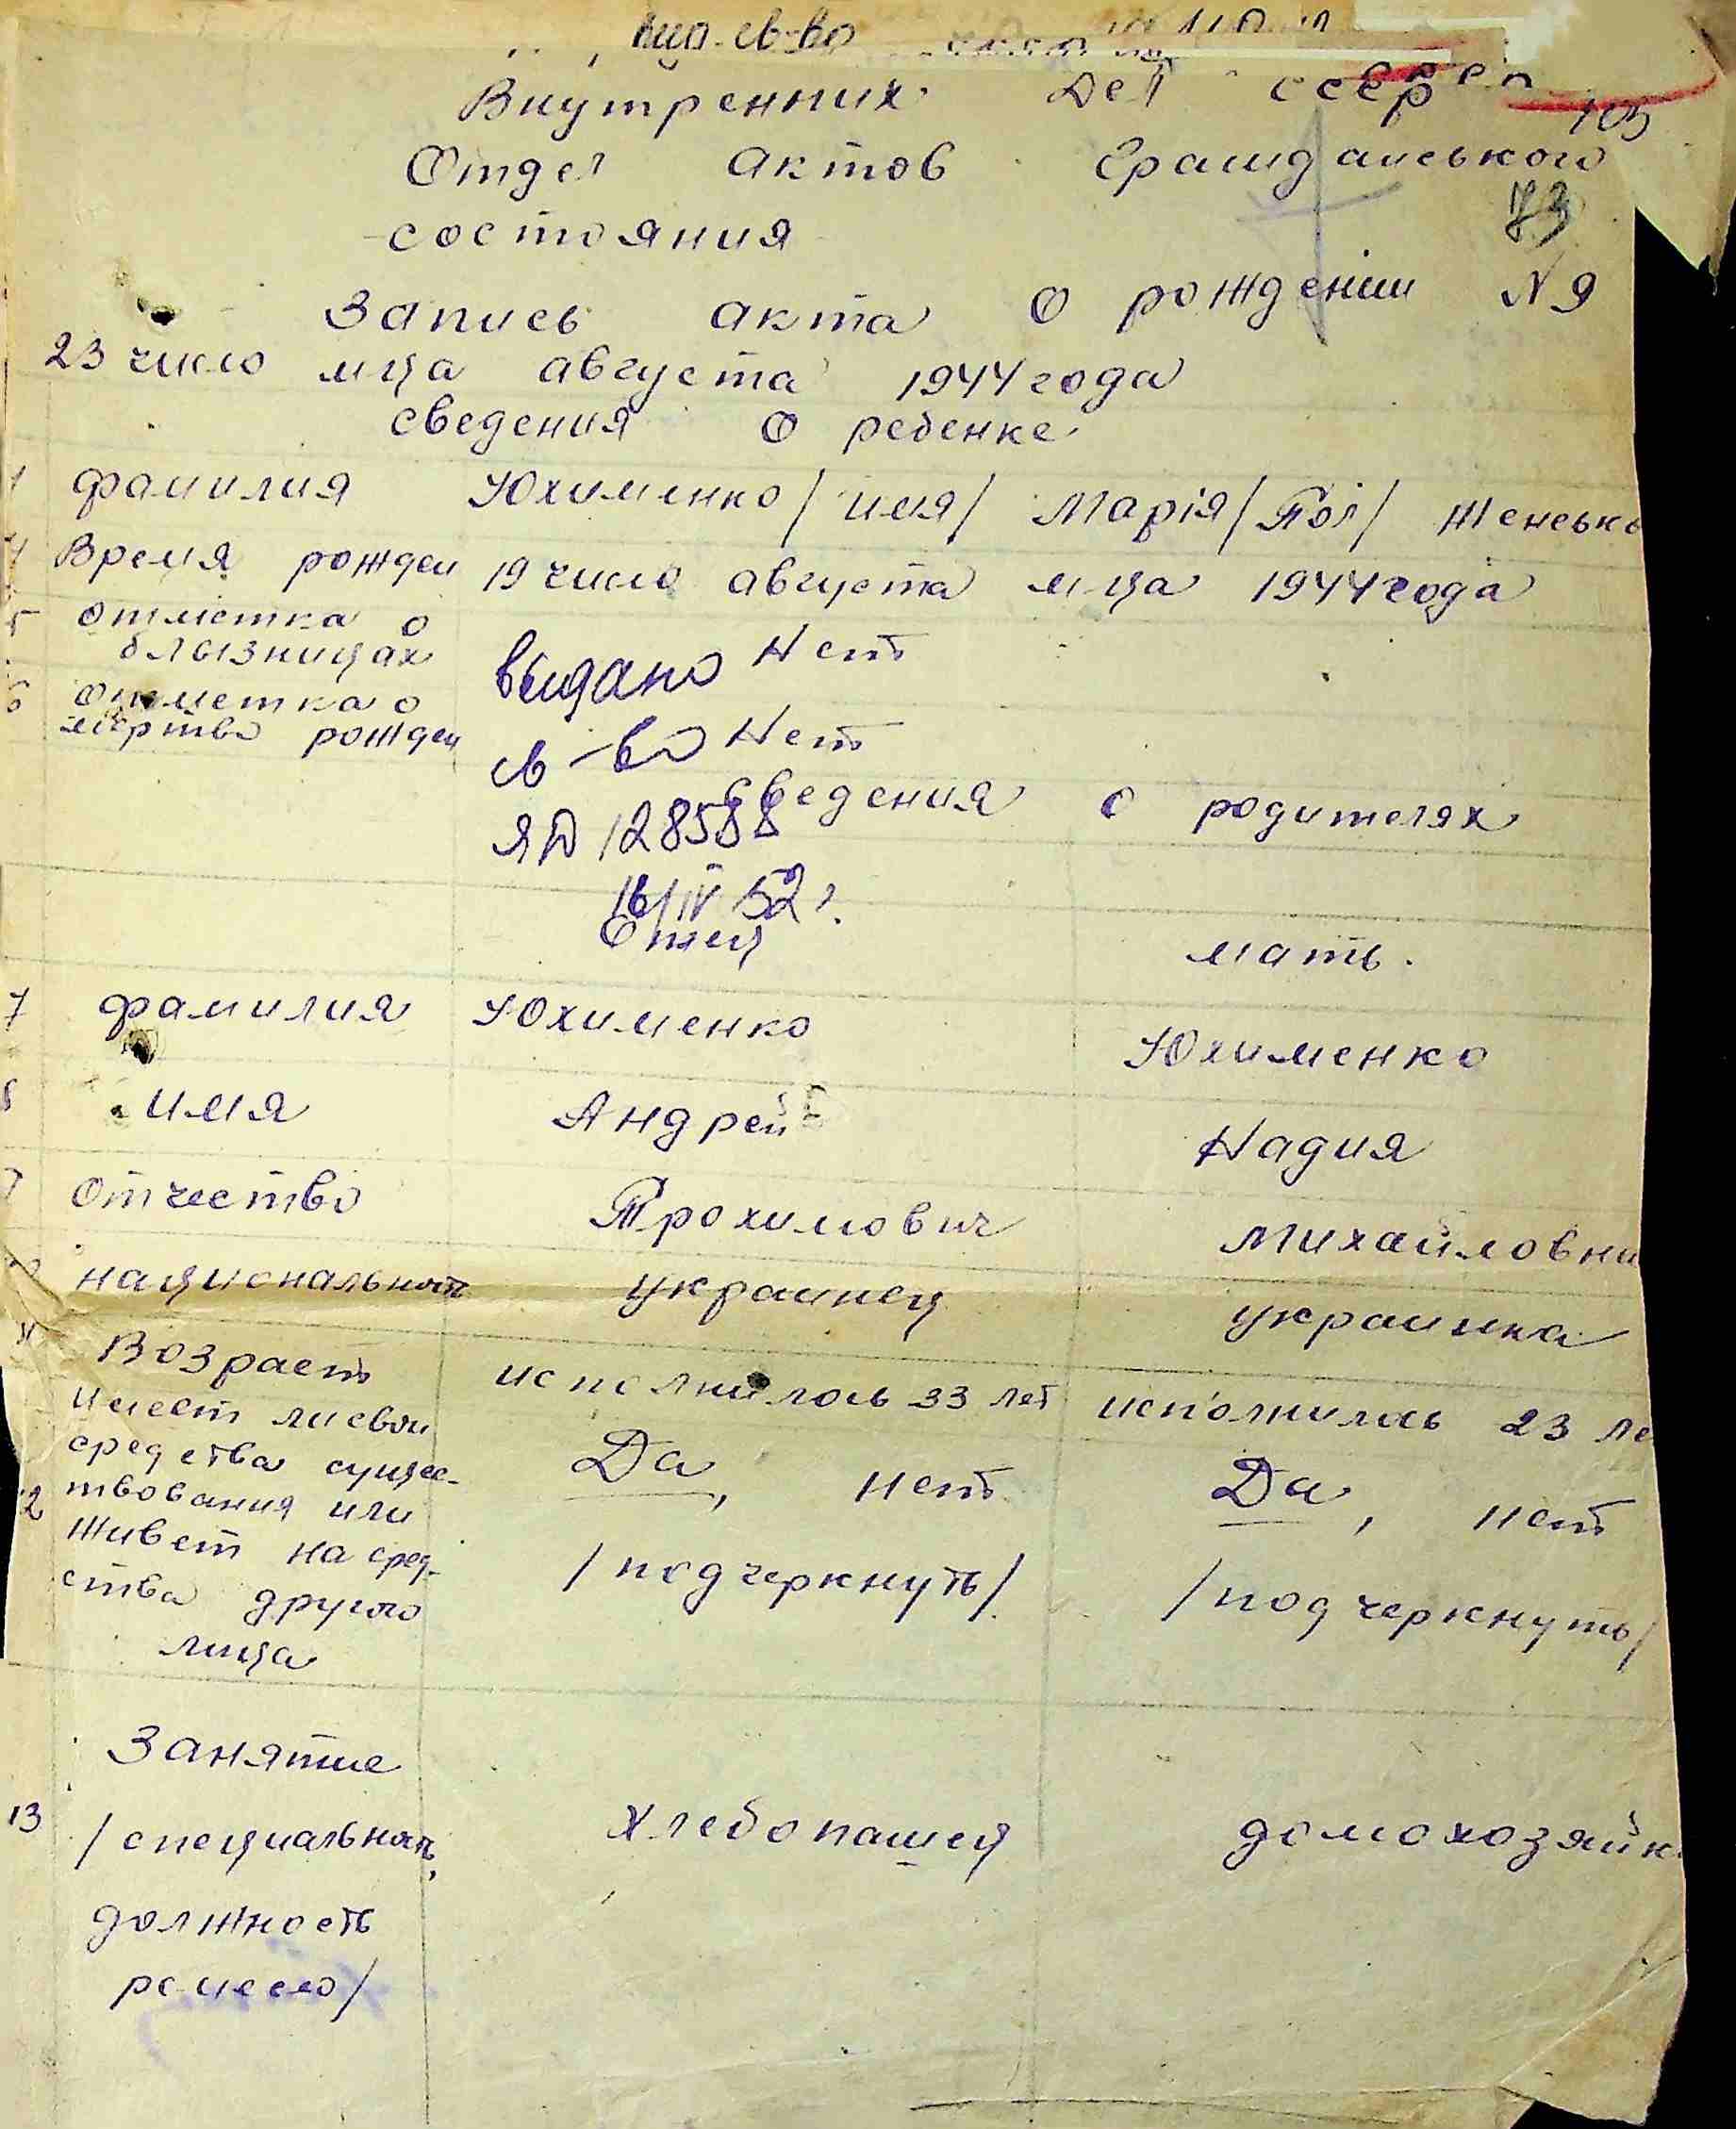 Внутренних Дел СССР
103
Отдел Актов Гражданського
83
состояния
Запись акта о рождении N 9
23 число м-ца августа 1944 года
сведения о ребенке
1 фамилия Юхименко / имя / Марія / Пол / Женсько
4 Время рожден 19 число августа м-ца 1944 года
5 отметка о
близницах Нет
выдано
6 отметка о
мертво рожден Нет
св-во
сведения о родителях
ЯД 128588
16/IV 52 г.
Отец мать.
7 фамилия Юхименко Юхименко
8 имя Андрей Надия
Отчество Трохимович Михайловна
национальность украинец украинка
11 Возраст исполнилось 33 лет исполнилось 23 ле
Имеет ли свои
средства сущес-
12 твования или Да, нет Да, нет
Живет на сред-
ства другого /подчеркнуть/ /подчеркнуть/
лица
Занятие
13 /специальность, хлебопашец домохозяйк
должность
ремесло/